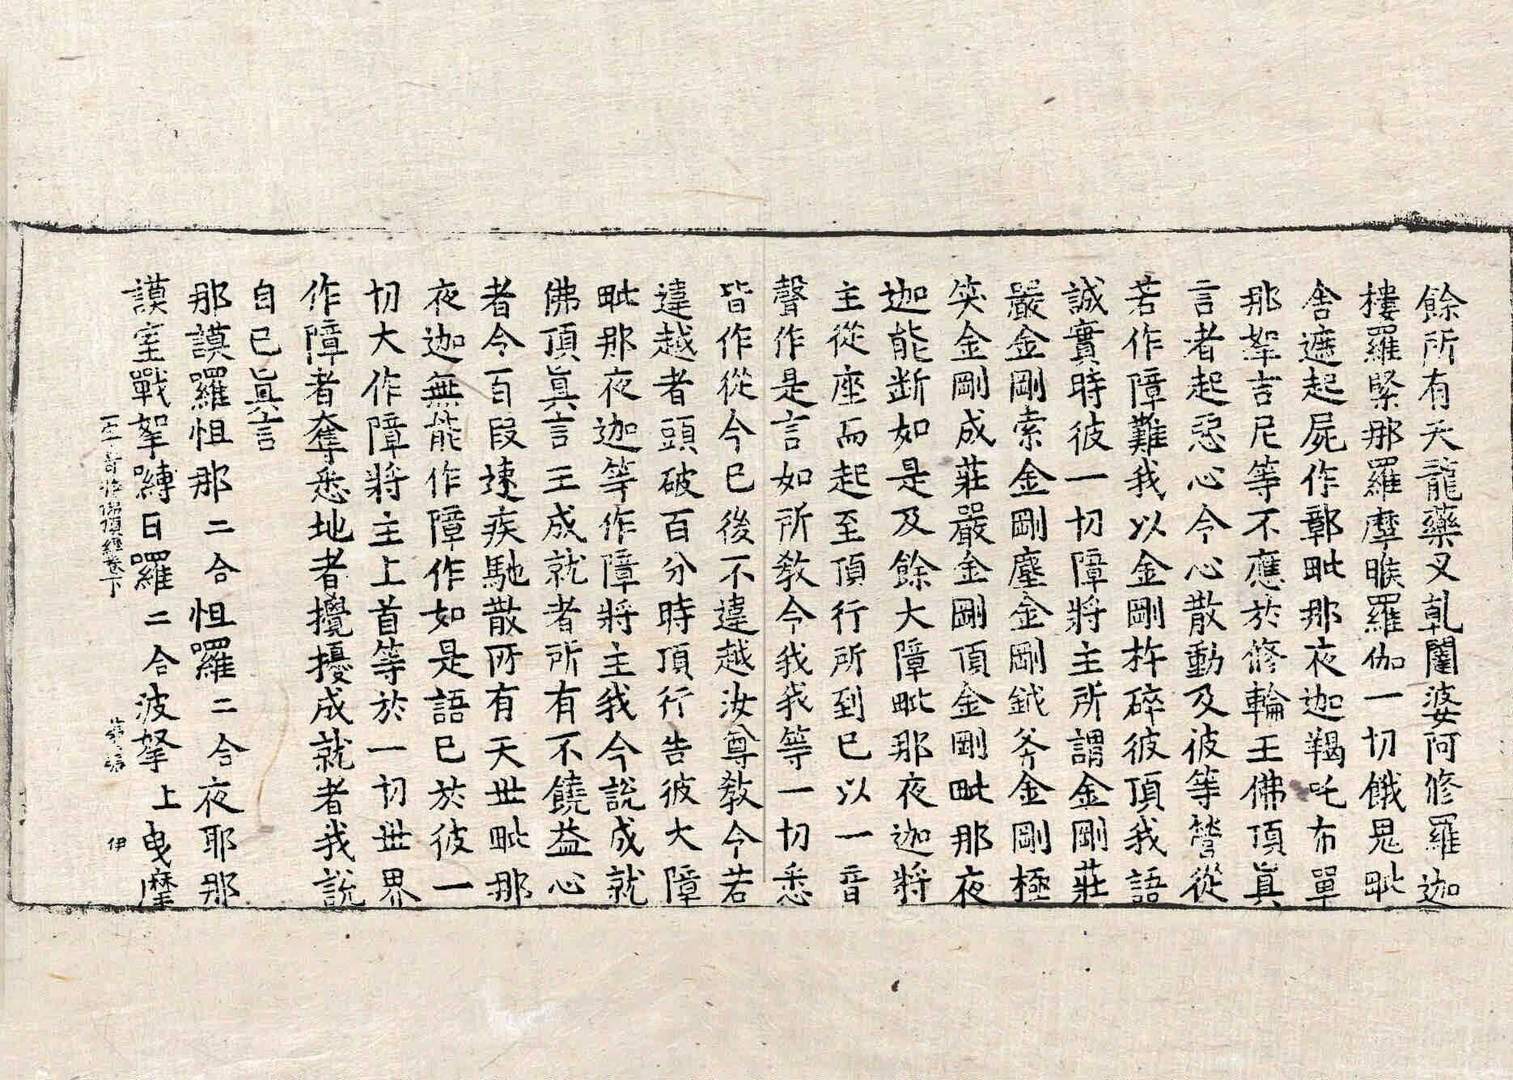 餘所有天龍藥叉乹闥婆阿修羅迦
樓羅緊那羅摩睺羅伽一切餓鬼毗
舍遮起屍作鄣毗那夜迦羯吒布單
那拏吉尼等不應於修輪王佛頂眞
言者起惡心令心散動及彼等營從
若作障難我以金剛杵碎彼頂我語
誠實時彼一切障將主所謂金剛莊
嚴金剛索金剛塵金剛鉞斧金剛極
笑金剛成莊嚴金剛頂金剛毗那夜
迦能断如是及餘大障毗那夜迦將
主從座而起至頂行所到已以一音
聲作是言如所敎今我我等一切悉
皆作從今已後不違越汝尊敎今若
違越者頭破百分時頂行告彼大障
毗那夜迦等作障將主我今說成就
佛頂眞言王成就者所有不饒益心
者令百段速疾馳散所有天世毗那
夜迦無能作障作如是語已於彼一
切大作障將主上首等於一切世界
作障者奪悉地者攪擾成就者我說
自已眞言
那謨羅怛那二合怛囉二合夜耶那
謨室戰拏嚩日囉二合波拏上曳摩
一字奇特佛頂經卷下 伊